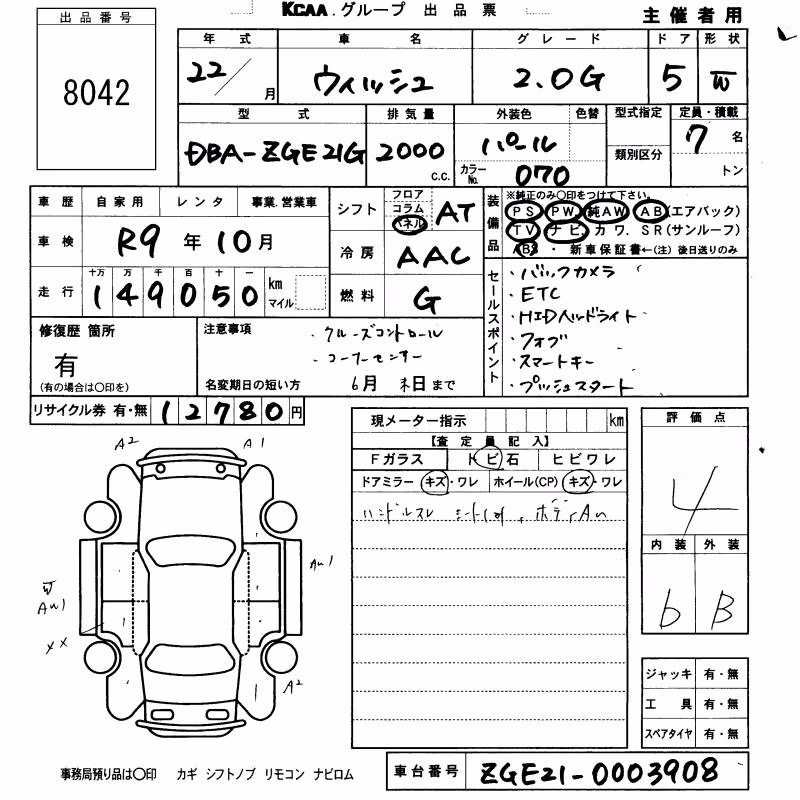 KCAA.グループ 出品票 主催者用
出品番号
8042
年式 車名 グレード ドア 形状
22/月 ウィッシュ 2.0G 5 W
型式 排気量 外装色 色替 型式指定 定員・積載
DBA-ZGE21G 2000 c.c. パール 類別区分 7名
カラーNo. 070 トン
車歴 自家用 レンタ 事業.営業車 シフト フロア コラム パネル AT
装備品 ※純正のみ〇印をつけて下さい。
PS PW 純AW AB(エアバック)
TV ナビ カワ SR(サンルーフ)
ABS ・ 新車保証書←(注)後日送りのみ
車検 R9年10月 冷房 AAC
走行 十万 万 千 百 十 一 km マイル
149050
燃料 G
セールスポイント
・バックカメラ
・ETC
・HIDヘッドライト
・フォグ
・スマートキー
・プッシュスタート
修復歴 箇所
有
(有の場合は〇印を)
注意事項
・クルーズコントロール
・コーナーセンサー
名変期日の短い方 6月 末日まで
リサイクル券 有・無 12780円
現メーター指示 km
【査定員記入】
Fガラス トビ石 ヒビワレ
ドアミラー キズ・ワレ ホイール(CP) キズ・ワレ
ハンドルスレ
評価点
4
内装 外装
b B
A2 A1
AW1
W
AW1
XX
A2
ジャッキ 有・無
工具 有・無
スペアタイヤ 有・無
事務局預り品は〇印 カギ シフトノブ リモコン ナビロム
車台番号 ZGE21-0003908